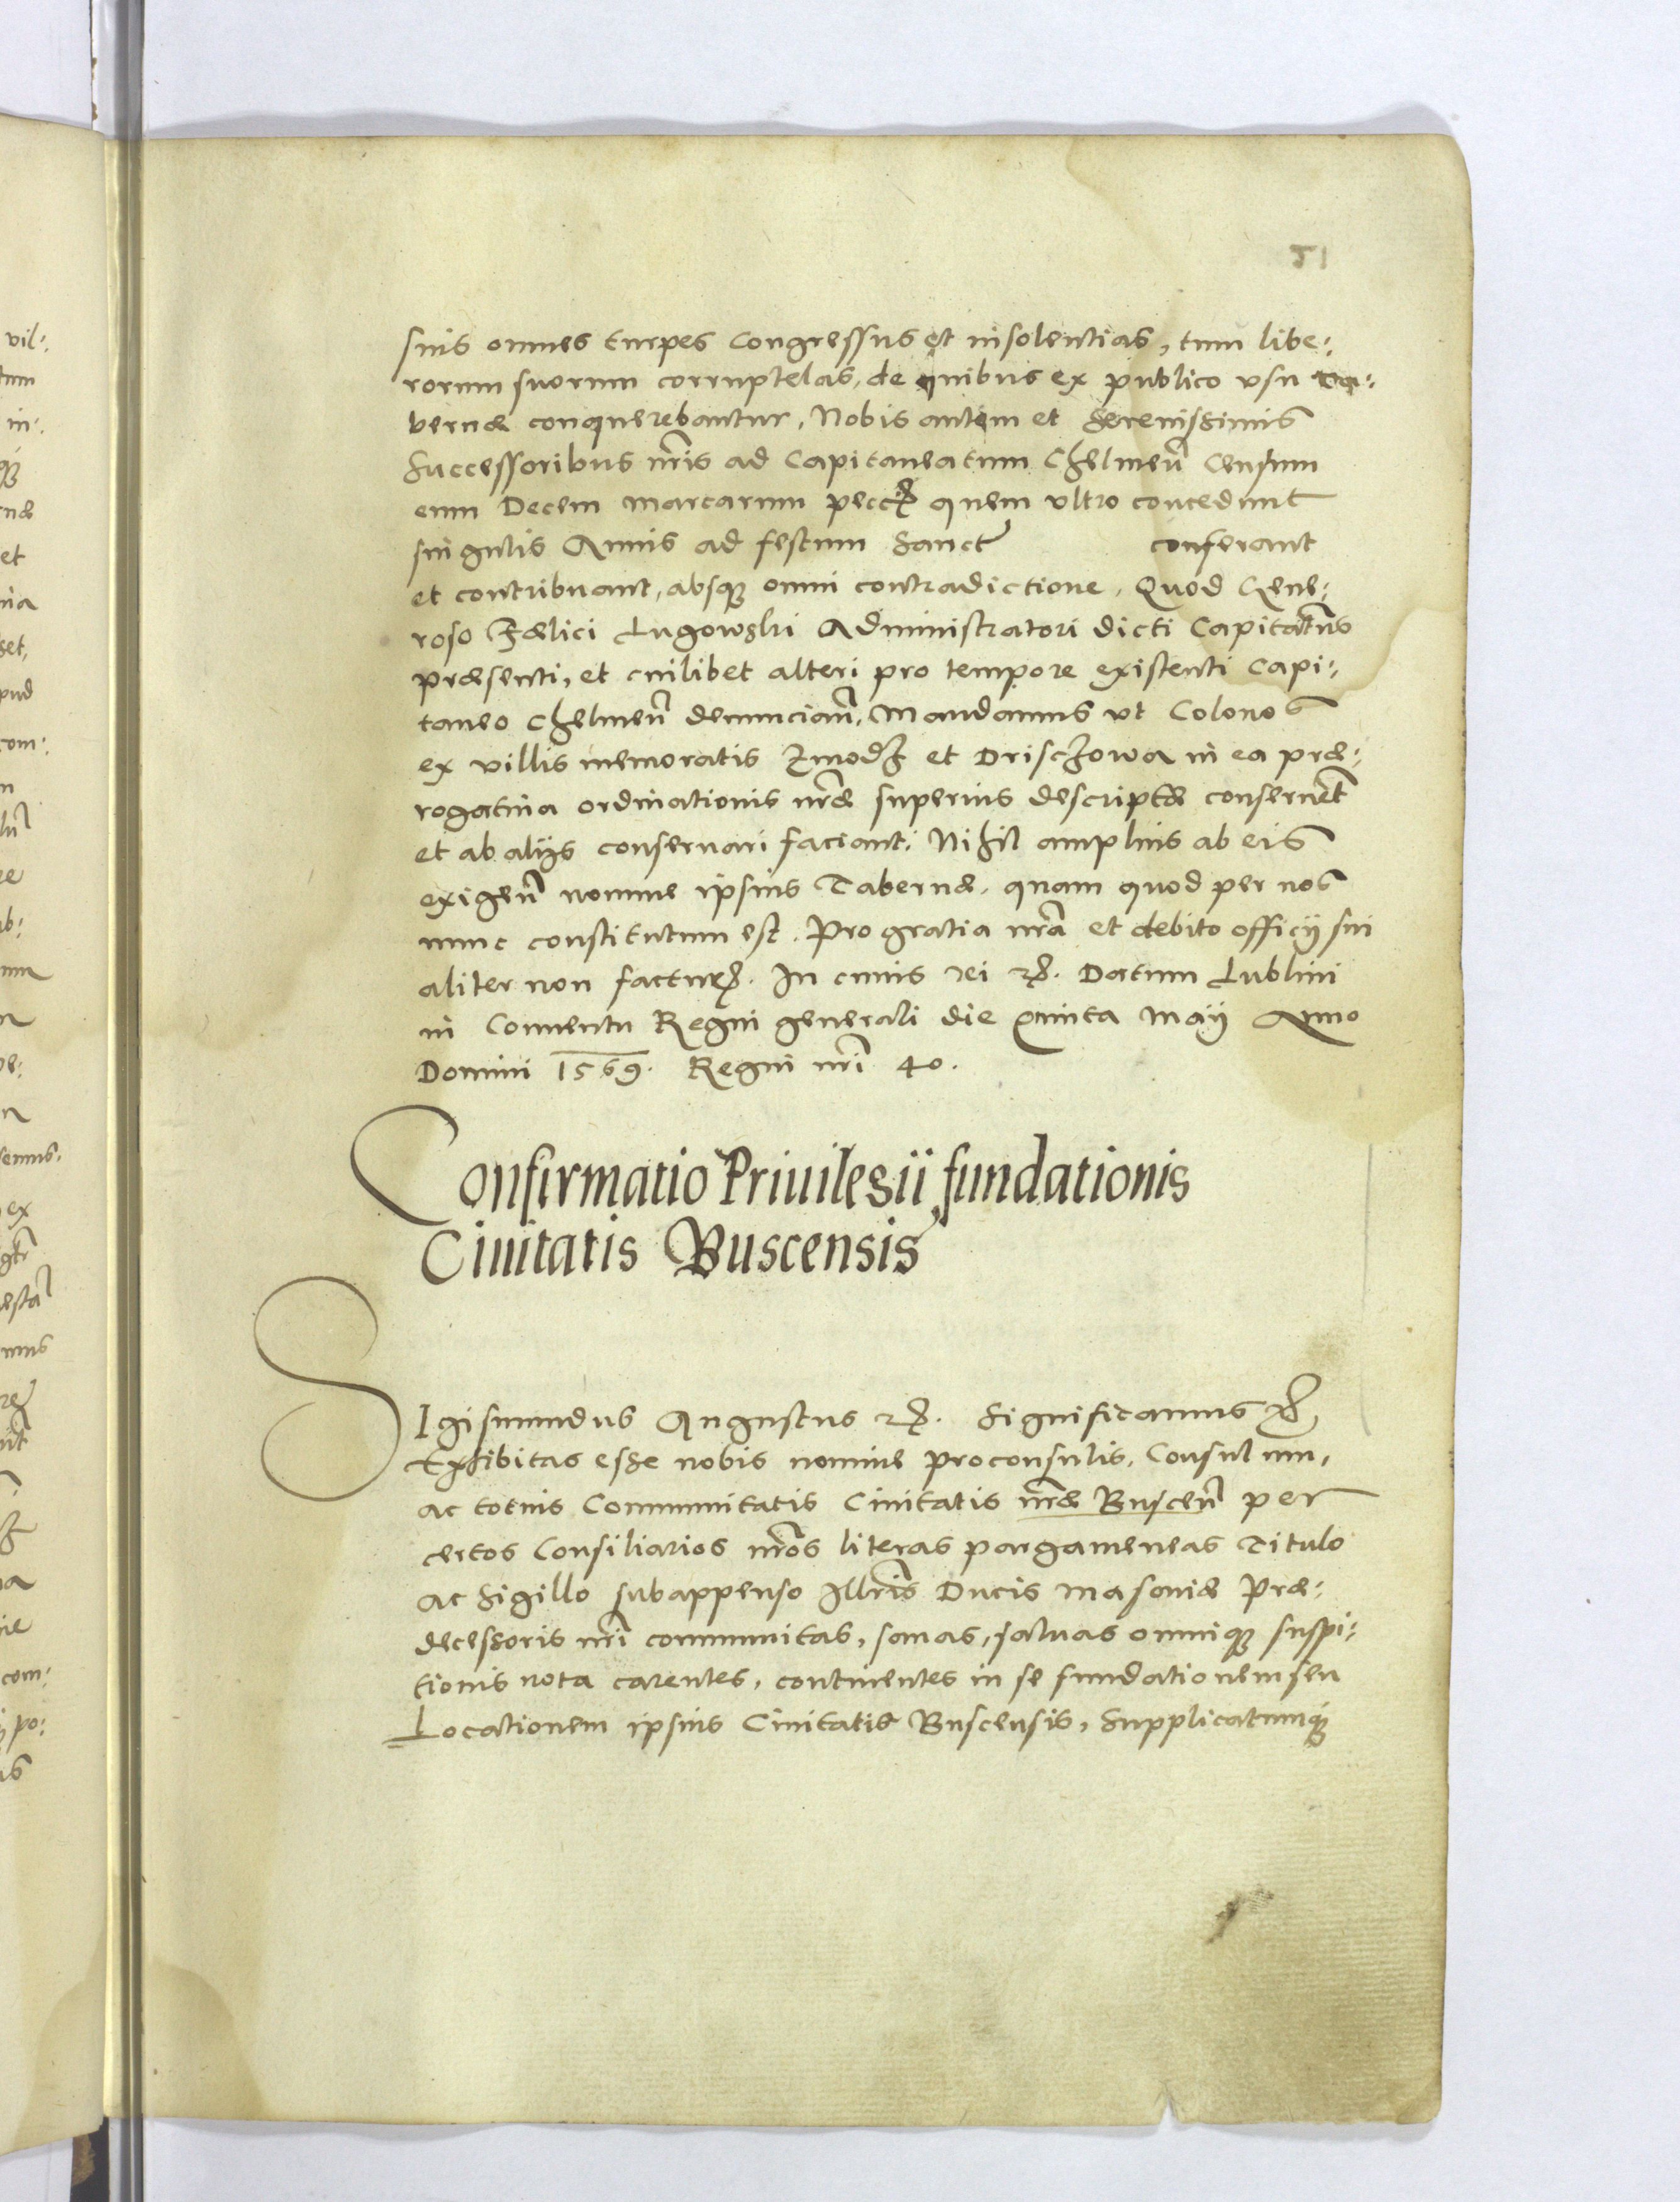 51
suis omnes turpes congressus et insolentias, tum libe:
rorum suorum corruptelas, de quibus ex publico vsu ta:
bernæ conquerebantur. Nobis autem et Serenissimis
Successoribus nr̃is ad Capitaneatum Chelmeñ Censum
eum Decem marcarum quem vltro concedunt
singulis Annis ad festum Sanct conferant
et contribuant, absq3 omni contradictione. Quod Gene:
roso Fælici Lugowski Administratori dicti Capitatus
præsenti, et cuilibet alteri pro tempore existenti Capi:
taneo Chelmeñ denunciañ. Mandamus vt Colonos
ex villis memoratis Zmodz et Drisczowa in ea præ:
rogatiua ordinationis nr̃æ superius descriptæ conseruet
et ab alijs conseruari faciant. Nihil amplius ab eis
exigeñ nomine ipsius Tabernæ. quam quod per nos
nunc constitutum est. Pro gratia nr̃a et debito officij sui
aliter non factur. In cuius rei etc. Datum Lublini
in Conuentu Regni generali die quinta Maij Anno
Domini 1569. Regni nr̃i 40.
Confirmatio Priuilegii fundationis
Ciuitatis Buscensis
SIgismundus Augustus etc. Significamus etc.
Exhibitas esse nobis nomine proconsulis, Consulum,
ac totius Communitatis Ciuitatis nr̃æ Busceñ per
certos Consiliarios nr̃os literas pargameneas Titulo
ac Sigillo subappenso Illris Ducis Masouiæ Præ:
decessoris nr̃i communitas, sanas, saluas omniq3 suspi:
tionis nota carentes, continentes in se fundationem seu
Locationem ipsius Ciuitatis Buscensis, Supplicatumq3